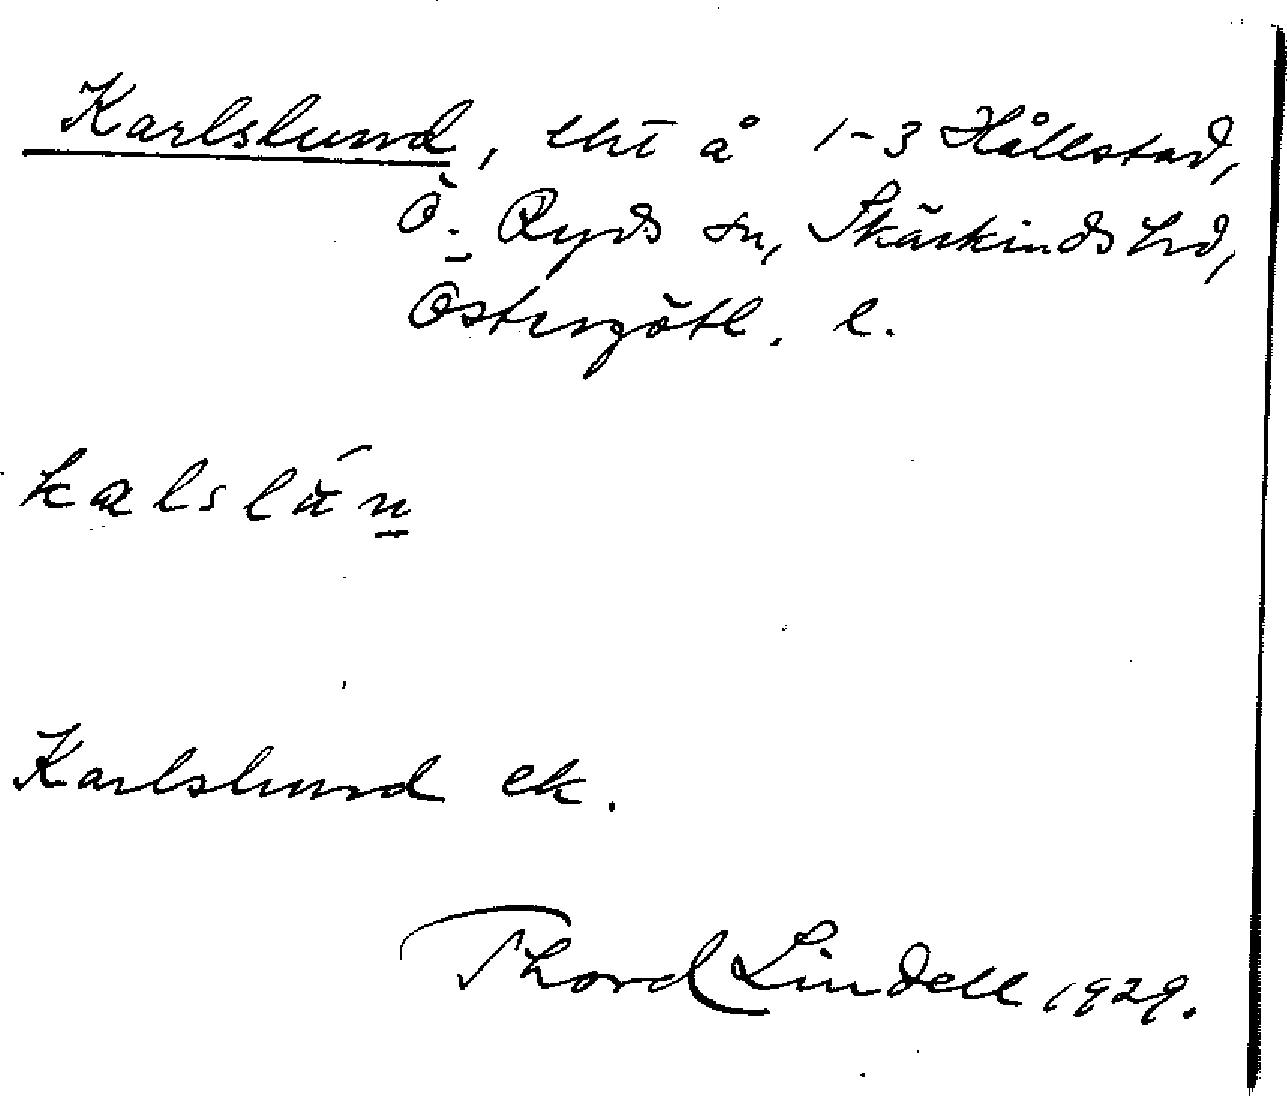 Karlslund, tht å 1-3 Hållstad,
Ö. Ryds sn, Skärkinds hd,
Östergötl. l.
kalslún
Karlslund ek.
Thord Lindell 1929.